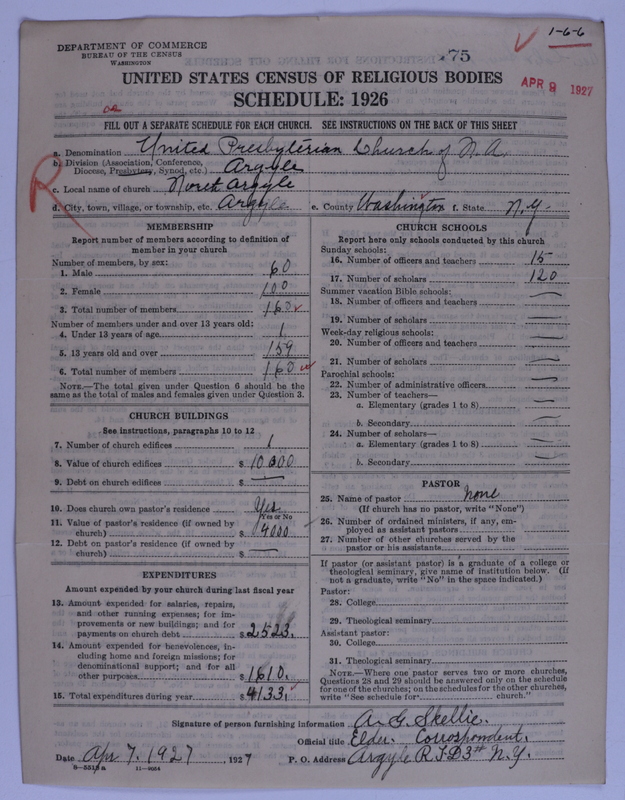 1-6-6
75
DEPARTMENT OF COMMERCE
BUREAU OF THE CENSUS
WASHINGTON
UNITED STATES CENSUS OF RELIGIOUS BODIES
APR 8 1927
SCHEDULE: 1926
FILL OUT A SEPARATE SCHEDULE FOR EACH CHURCH. SEE INSTRUCTIONS ON THE BACK OF THIS SHEET
a. Denomination United Presbyterian Church of N. A.
b. Division (Association, Conference,
Diocese, Presbytery, Synod, etc.) Argyle
c. Local name of church North Argyle
d. City, town, village, or township, etc. Argyle e. County Washington f. State N.Y.
MEMBERSHIP
Report number of members according to definition of
member in your church
Number of members, by sex:
1. Male 60
2. Female 100
3. Total number of members 160
Number of members under and over 13 years old:
4. Under 13 years of age 1
5. 13 years old and over 159
6. Total number of members 160
NOTE.—The total given under Question 6 should be the
same as the total of males and females given under Question 3.
CHURCH BUILDINGS
See instructions, paragraphs 10 to 12
7. Number of church edifices 1
8. Value of church edifices $ 10000
9. Debt on church edifices $ —
10. Does church own pastor's residence Yes
Yes or No
11. Value of pastor's residence (if owned by
church) $ 4000
12. Debt on pastor's residence (if owned by
church) $ —
EXPENDITURES
Amount expended by your church during last fiscal year
13. Amount expended for salaries, repairs,
and other running expenses; for im-
provements or new buildings; and for
payments on church debt $ 2523.
14. Amount expended for benevolences, in-
cluding home and foreign missions; for
denominational support; and for all
other purposes $ 1610.
15. Total expenditures during year $ 4133.
CHURCH SCHOOLS
Report here only schools conducted by this church
Sunday schools:
16. Number of officers and teachers 15
17. Number of scholars 120
Summer vacation Bible schools:
18. Number of officers and teachers —
19. Number of scholars —
Week-day religious schools:
20. Number of officers and teachers —
21. Number of scholars —
Parochial schools:
22. Number of administrative officers —
23. Number of teachers—
a. Elementary (grades 1 to 8) —
b. Secondary —
24. Number of scholars—
a. Elementary (grades 1 to 8) —
b. Secondary —
PASTOR
25. Name of pastor None
(If church has no pastor, write "None")
26. Number of ordained ministers, if any, em-
ployed as assistant pastors
27. Number of other churches served by the
pastor or his assistants
If pastor (or assistant pastor) is a graduate of a college or
theological seminary, give name of institution below. (If
not a graduate, write "No" in the space indicated.)
Pastor:
28. College
29. Theological seminary
Assistant pastor:
30. College
31. Theological seminary
NOTE.—Where one pastor serves two or more churches,
Questions 28 and 29 should be answered only on the schedule
for one of the churches; on the schedules for the other churches,
write "See schedule for church."
Signature of person furnishing information A. G. Skellie.
Official title Elder. Corrospondent.
Date Apr 7. 1927, 1927 P. O. Address Argyle R.F.D 3 N.Y.
8—5515 a 11—9064